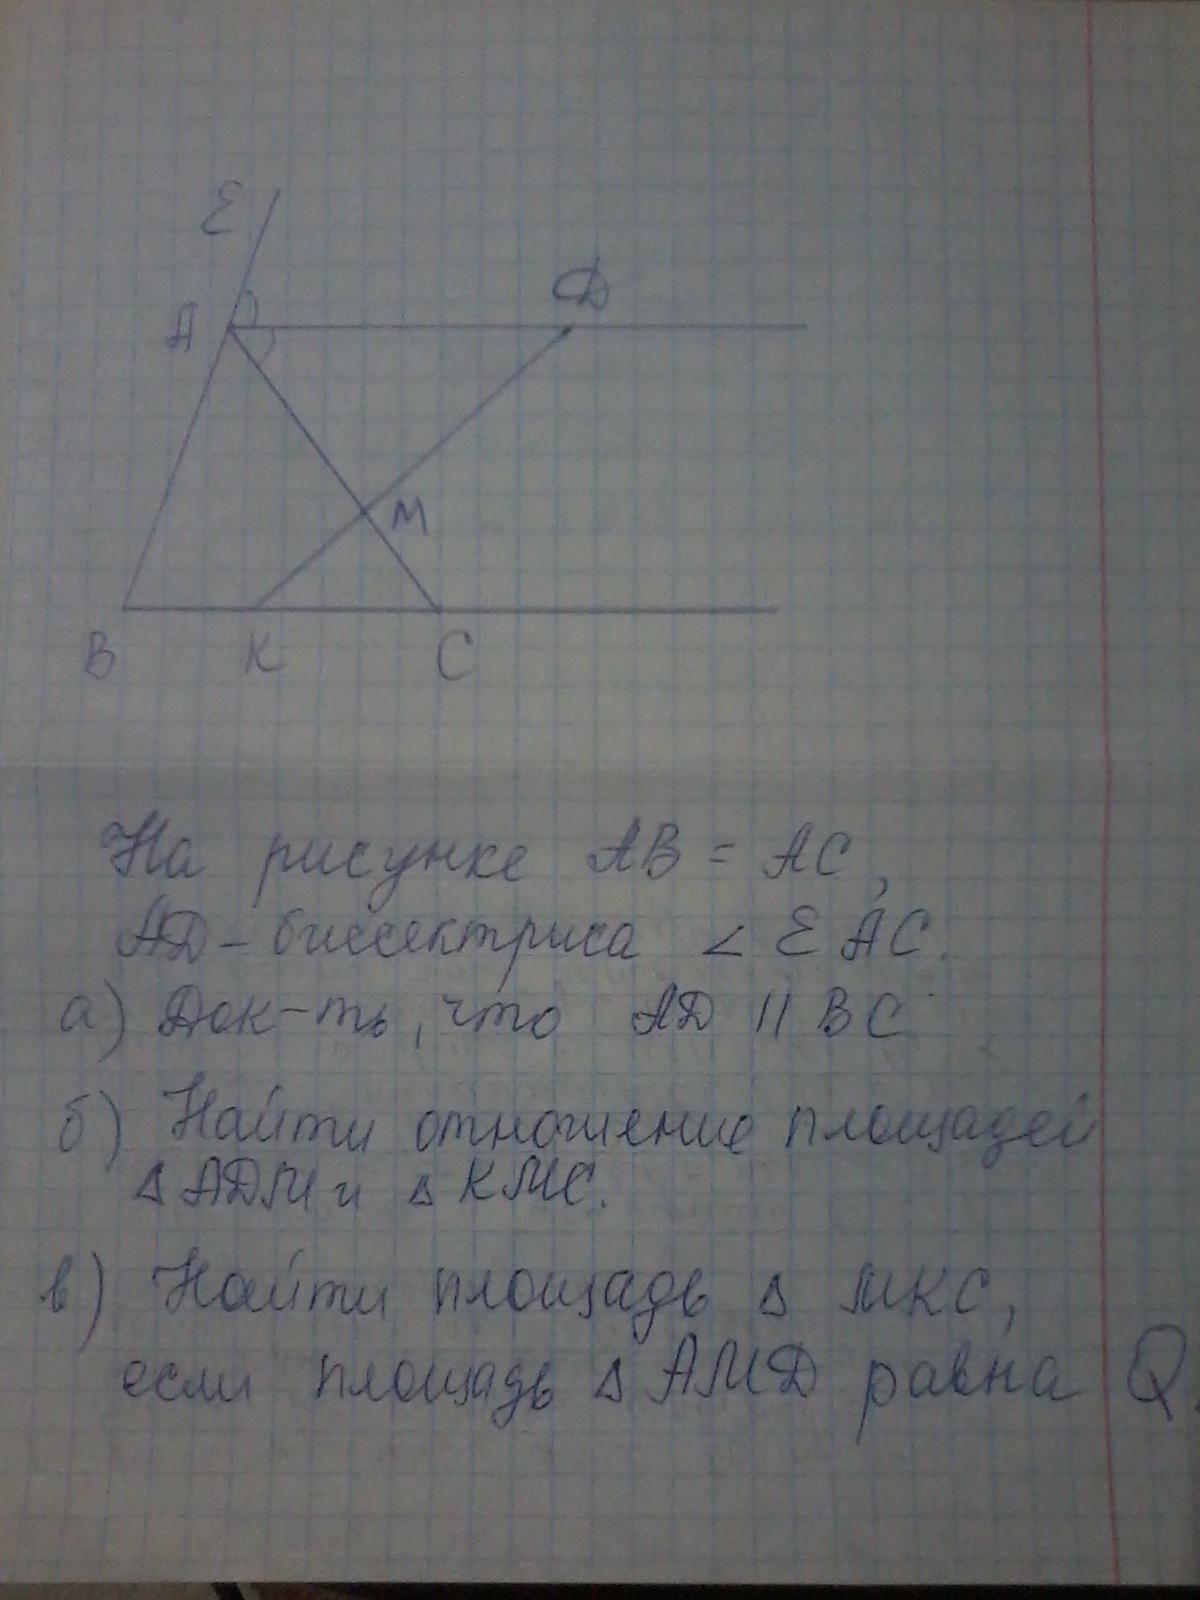 E
A
D
M
B K C
На рисунке AB = AC,
AD – биссектриса ∠ EAC.
а) Док-ть, что AD || BC
б) Найти отношение площадей
Δ ADM и Δ KMC.
в) Найти площадь Δ MKC,
если площадь Δ AMD равна Q.